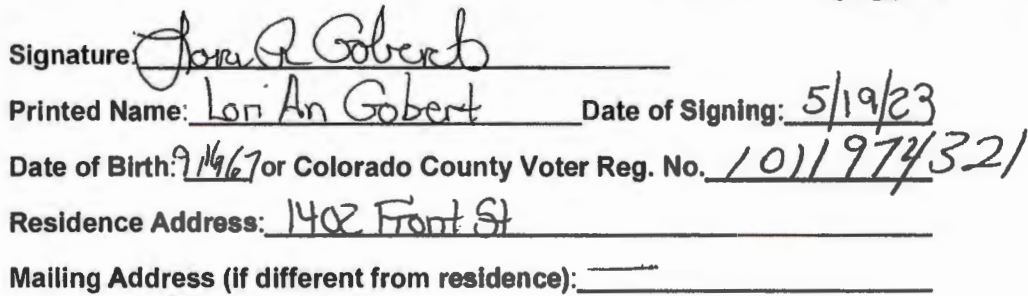 Signature: Lori A Gobert
Printed Name: Lori An Gobert Date of Signing: 5/19/23
Date of Birth: or Colorado County Voter Reg. No.
Residence Address: 1402 Front St
Mailing Address (if different from residence): —